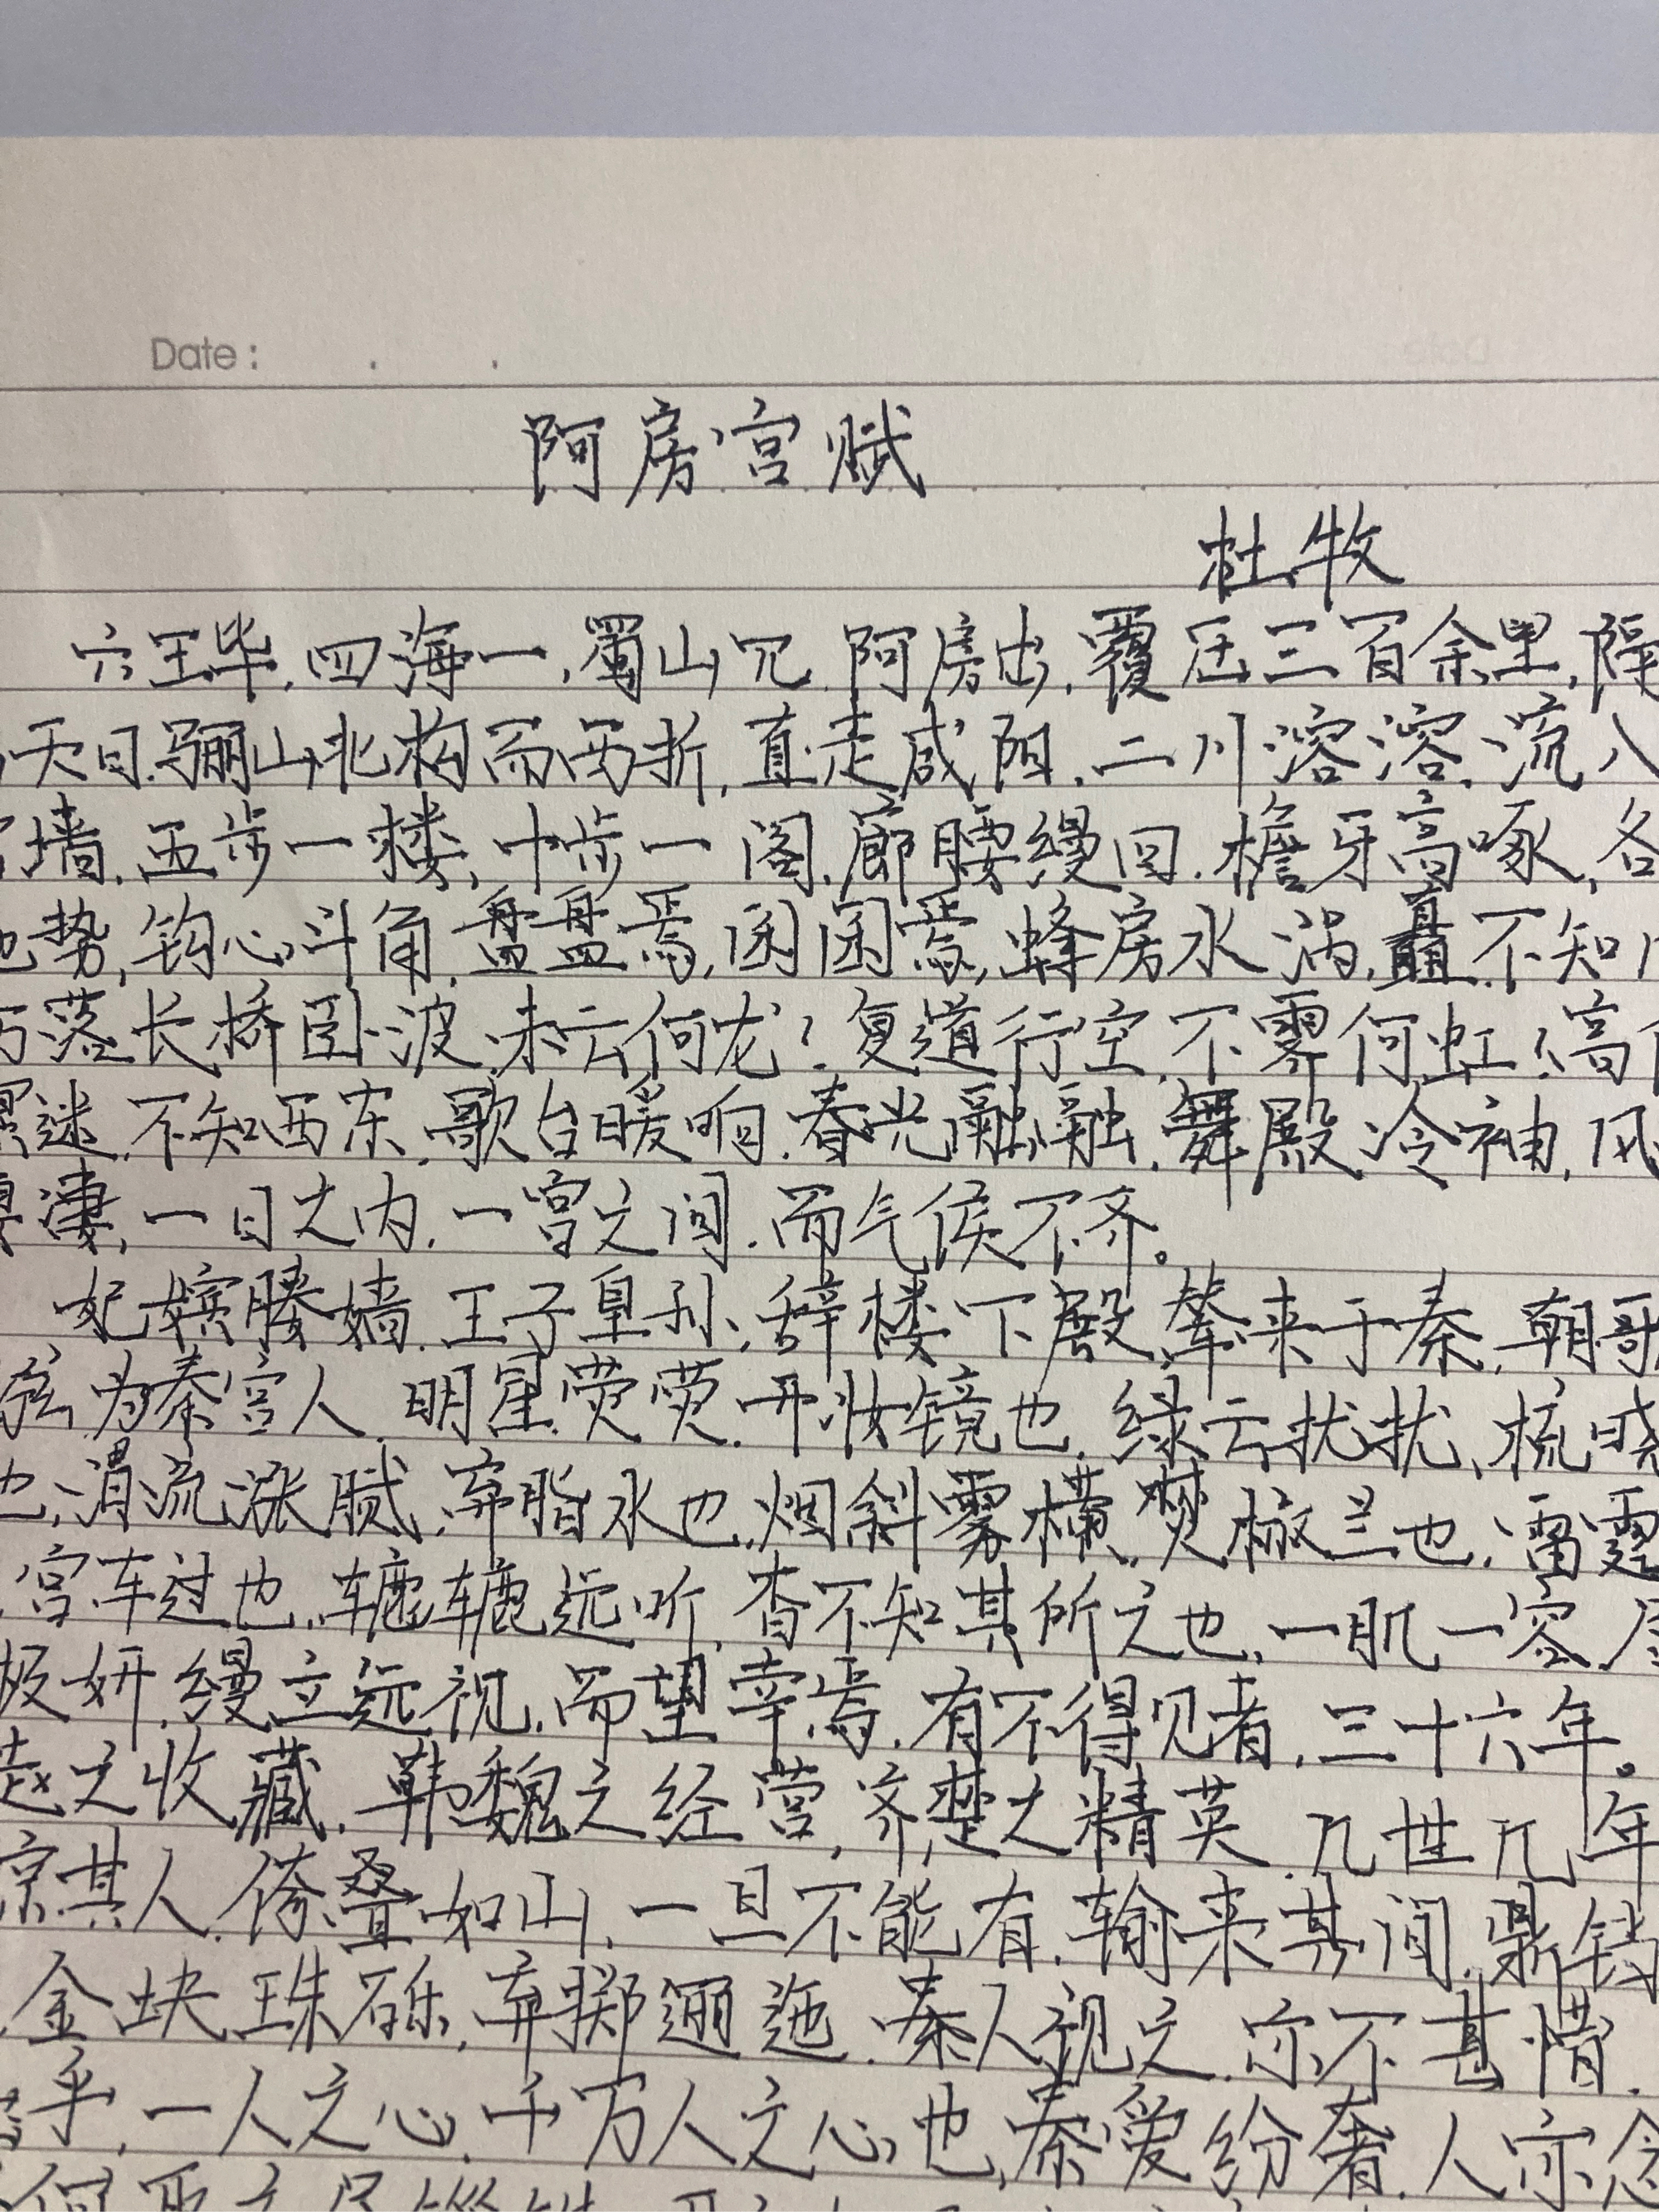 Date: . .
阿房宫赋
杜牧
六王毕,四海一,蜀山兀.阿房出,覆压三百余里,隔
天日.骊山北构而西折,直走咸阳.二川溶溶,流入
墙.五步一楼,十步一阁,廊腰缦回.檐牙高啄,各
地势,钩心斗角.盘盘焉,囷囷焉,蜂房水涡,矗不知
落长桥卧波.未云何龙?复道行空.不霁何虹?高
迷.不知西东.歌台暖响.春光融融.舞殿冷袖,风
凄,一日之内.一宫之间.而气候不齐。
妃嫔媵嫱.王子皇孙,辞楼下殿,辇来于秦,朝歌
弦为秦宫人.明星荧荧.开妆镜也.绿云扰扰,梳晓
也,渭流涨腻,弃脂水也.烟斜雾横.焚椒兰也.雷霆
宫车过也.辘辘远听,杳不知其所之也,一肌一容.尽
极妍.缦立远视.而望幸焉.有不得见者,三十六年。
赵之收藏.韩魏之经营,齐楚之精英.几世几年
其人.倚叠如山,一旦不能有.输来其间,鼎铛
金块珠砾,弃掷逦迤.秦人视之.亦不甚惜.
乎,一人之心.千万人之心也,秦爱纷奢.人亦念